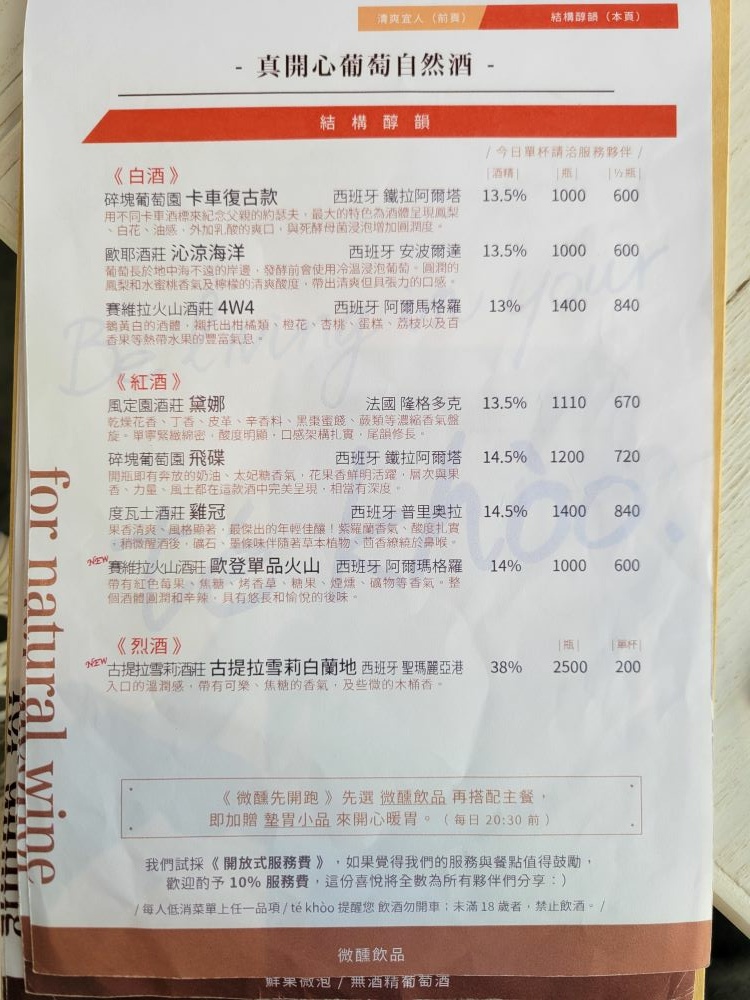 清爽宜人（前頁）
結構醇韻（本頁）
- 真開心葡萄自然酒 -
結構醇韻
/ 今日單杯請洽服務夥伴 /
《白酒》 |酒精| |瓶| |½瓶|
碎塊葡萄園 卡車復古款 西班牙 鐵拉阿爾塔 13.5% 1000 600
用不同卡車酒標來紀念父親的約瑟夫，最大的特色為酒體呈現鳳梨
、白花、油感，外加乳酸的爽口，與死酵母菌浸泡增加圓潤度。
歐耶酒莊 沁涼海洋 西班牙 安波爾達 13.5% 1000 600
葡萄長於地中海不遠的岸邊，發酵前會使用冷溫浸泡葡萄。圓潤的
鳳梨和水蜜桃香氣及檸檬的清爽酸度，帶出清爽但具張力的口感。
賽維拉火山酒莊 4W4 西班牙 阿爾馬格羅 13% 1400 840
鵝黃白的酒體，襯托出柑橘類、橙花、杏桃、蛋糕、荔枝以及百
香果等熱帶水果的豐富氣息。
《紅酒》
風定園酒莊 黛娜 法國 隆格多克 13.5% 1110 670
乾燥花香、丁香、皮革、辛香料、黑棗蜜餞、蕨類等濃縮香氣盤
旋。單寧緊緻綿密，酸度明顯，口感架構扎實，尾韻修長。
碎塊葡萄園 飛碟 西班牙 鐵拉阿爾塔 14.5% 1200 720
開瓶即有奔放的奶油、太妃糖香氣，花果香鮮明活躍，層次與果
香、力量、風土都在這款酒中完美呈現，相當有深度。
度瓦士酒莊 雞冠 西班牙 普里奧拉 14.5% 1400 840
果香清爽、風格顯著，最傑出的年輕佳釀！紫羅蘭香氣、酸度扎實
，稍微醒酒後，礦石、墨條味伴隨著草本植物、茴香繚繞於鼻喉。
NEW 賽維拉火山酒莊 歐登單品火山 西班牙 阿爾瑪格羅 14% 1000 600
帶有紅色莓果、焦糖、烤香草、糖果、煙燻、礦物等香氣。整
個酒體圓潤和辛辣，具有悠長和愉悅的後味。
《烈酒》 |瓶| |單杯|
NEW 古提拉雪莉酒莊 古提拉雪莉白蘭地 西班牙 聖瑪麗亞港 38% 2500 200
入口的溫潤感，帶有可樂、焦糖的香氣，及些微的木桶香。
for natural wine
《微醺先開跑》先選 微醺飲品 再搭配主餐，
即加贈 墊胃小品 來開心暖胃。（每日 20:30 前）
我們試採《開放式服務費》，如果覺得我們的服務與餐點值得鼓勵，
歡迎酌予 10% 服務費，這份喜悅將全數為所有夥伴們分享：）
/ 每人低消菜單上任一品項 / té khòo 提醒您 飲酒勿開車；未滿 18 歲者，禁止飲酒。/
微醺飲品
鮮果微泡 / 無酒精葡萄酒